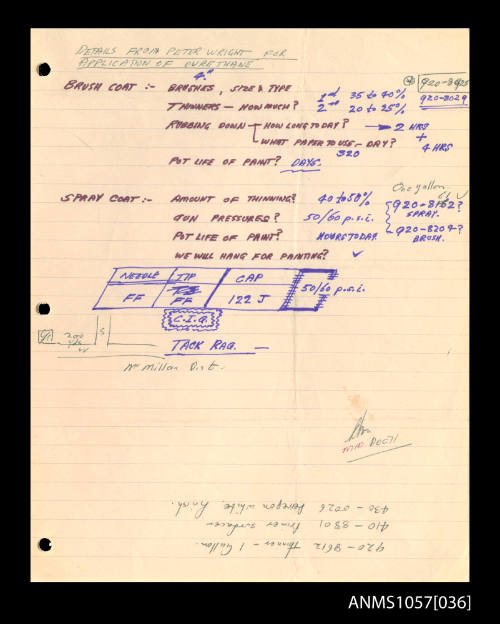 DETAILS FROM PETER WRIGHT FOR
APPLICATION OF DURETHANE
BRUSH COAT :- 4" BRUSHES, SIZE & TYPE
920-8425
920-8029
THINNERS - HOW MUCH? 1st 35 to 40%
2nd 20 to 25%
RUBBING DOWN HOW LONG TODAY? → 2 HRS
WHAT PAPER TO USE - DAY? + 4 HRS
320
POT LIFE OF PAINT? DAYS.
One gallon
SPRAY COAT :- AMOUNT OF THINNING? 40 to 50% 920-8162?
SPRAY.
GUN PRESSURES? 50/60 p.s.i.
920-8207?
BRUSH.
POT LIFE OF PAINT? HOURS TODAY.
WE WILL HANG FOR PAINTING? ✓
NEEDLE TIP CAP
FF FF 122 J 50/60 p.s.i.
C.I.G.
200
S
TACK RAG. —
Mc Millan Dist.
DOC 71
920-8612 thinner - 1 Gallon.
410-8801 Primer surfacer
430-0026 white finish.
ANMS1057[036]